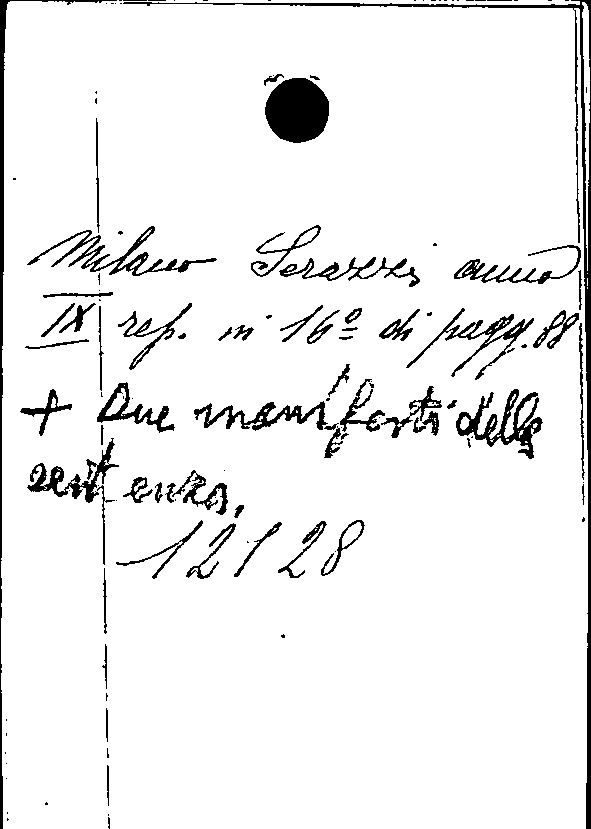 Milano Serazzi anno
IX rep. in 16º di pagg. 88
+ Due manifesti della
sentenza.
12128